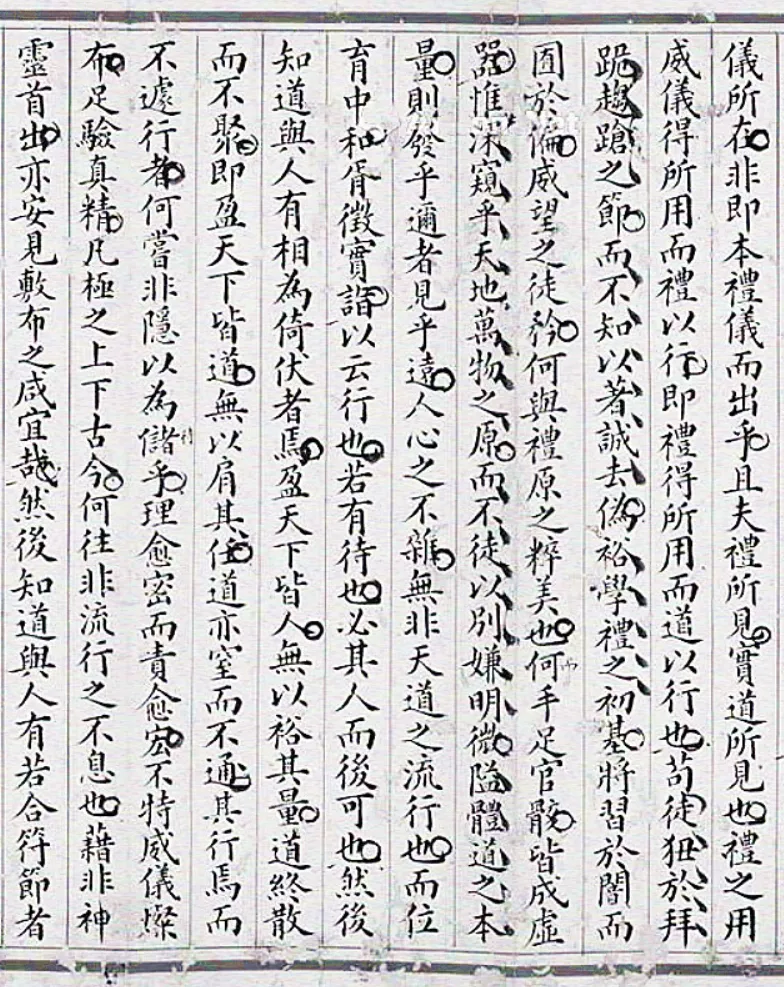 儀所在非即本禮儀而出乎且夫禮所見實道所見也禮之用
威儀得所用而禮以行即禮得所用而道以行也苟徒狃於拜
跪趨蹌之節而不知以著誠去偽裕學禮之初基將習於闇而
固於偏威望之徒矜何與禮原之粹美也何手足官骸皆成虛
器惟深窺乎天地萬物之原而不徒以別嫌明微隘體道之本
量則發乎邇者見乎遠人心之不雜無非天道之流行也而位
育中和胥徵實詣以云行也若有待也必其人而後可也然後
知道與人有相為倚伏者焉盈天下皆人無以裕其量道終散
而不聚即盈天下皆道無以肩其任道亦窒而不通其行焉而
不遽行者何嘗非隱以為儲乎理愈密而責愈宏不特威儀燦
布足驗真精凡極之上下古今何往非流行之不息也藉非神
靈首出亦安見敷布之咸宜哉然後知道與人有若合符節者